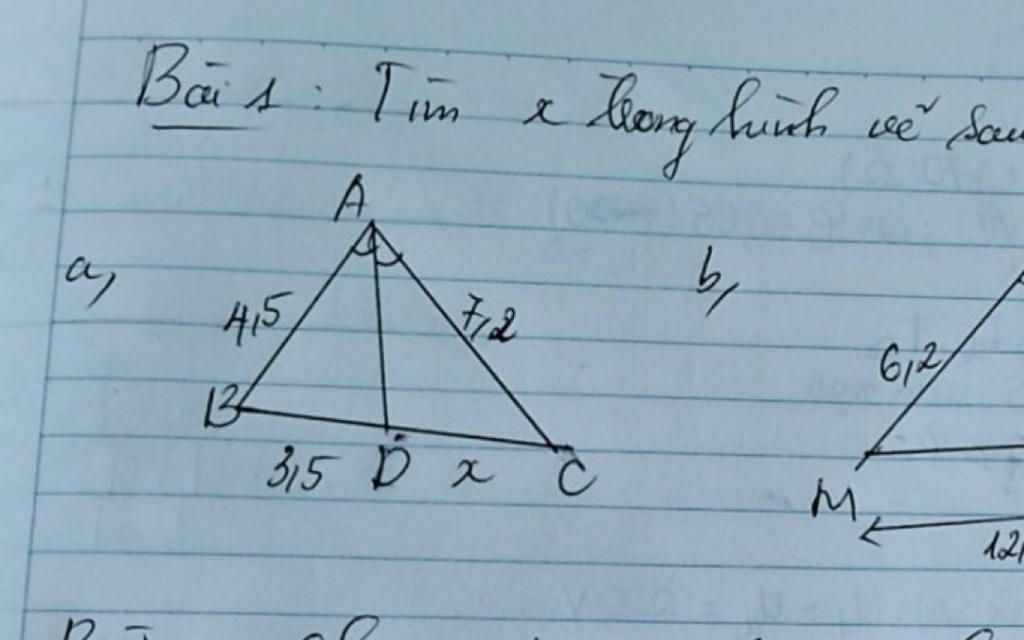 Bài 1: Tìm x trong hình vẽ sau
A
a,
b,
4,5
7,2
6,2
B
3,5 D x C
M
12,